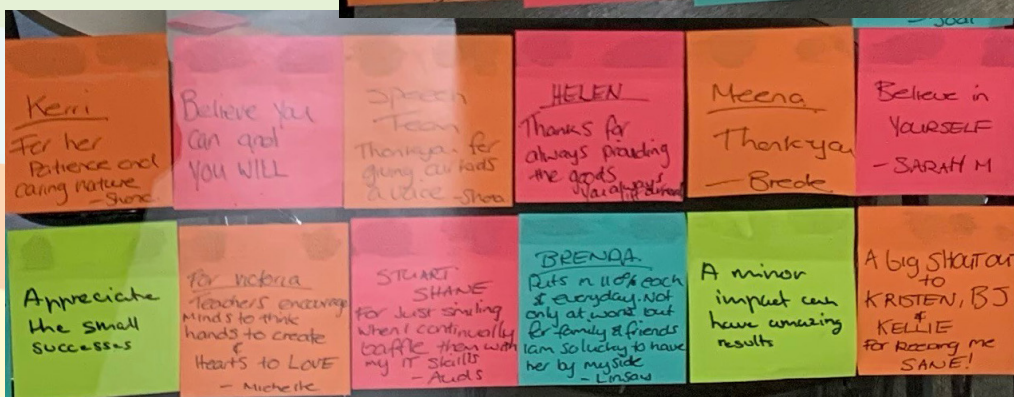 - Jodi
Kerri
For her
Patience and
caring nature
Believe you
can and
YOU WILL
Speech
Team
Thankyou for
giving our kids
a voice - Shona
HELEN
Thanks for
always providing
the goods
You always
Meena
Thankyou
- Brede
Believe in
YOURSELF
- SARAH M
Appreciate
the small
successes
For victoria
Teachers encourage
Minds to think
hands to create
&
Hearts to LOVE
- Michelle
STUART
SHANE
For Just smiling
when I continually
baffle them with
my IT skills
BRENDA
Puts in 110% each
& everyday. Not
only at work but
for family & friends
I am so lucky to have
her by my side
A minor
impact can
have amazing
results
A big SHOUTOUT
to
KRISTEN, BJ
&
KELLIE
For keeping me
SANE!